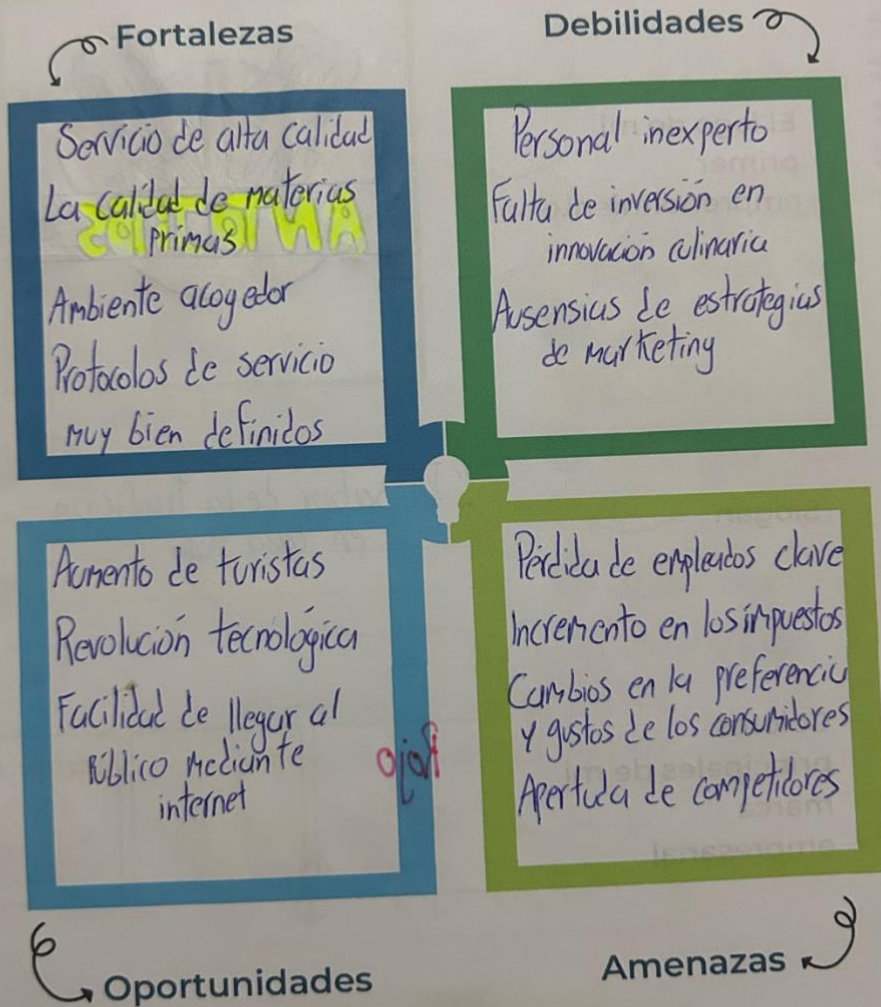 Fortalezas
Servicio de alta calidad
La calidad de materias
primas
Ambiente acogedor
Protocolos de servicio
muy bien definidos
Debilidades
Personal inexperto
Falta de inversión en
innovación culinaria
Ausensias de estrategias
de marketing
Aumento de turistas
Revolución tecnológica
Facilidad de llegar al
público mediante
internet
Oportunidades
Pérdida de empleados clave
Incremento en los impuestos
Cambios en la preferencia
y gustos de los consumidores
Apertura de competidores
Amenazas